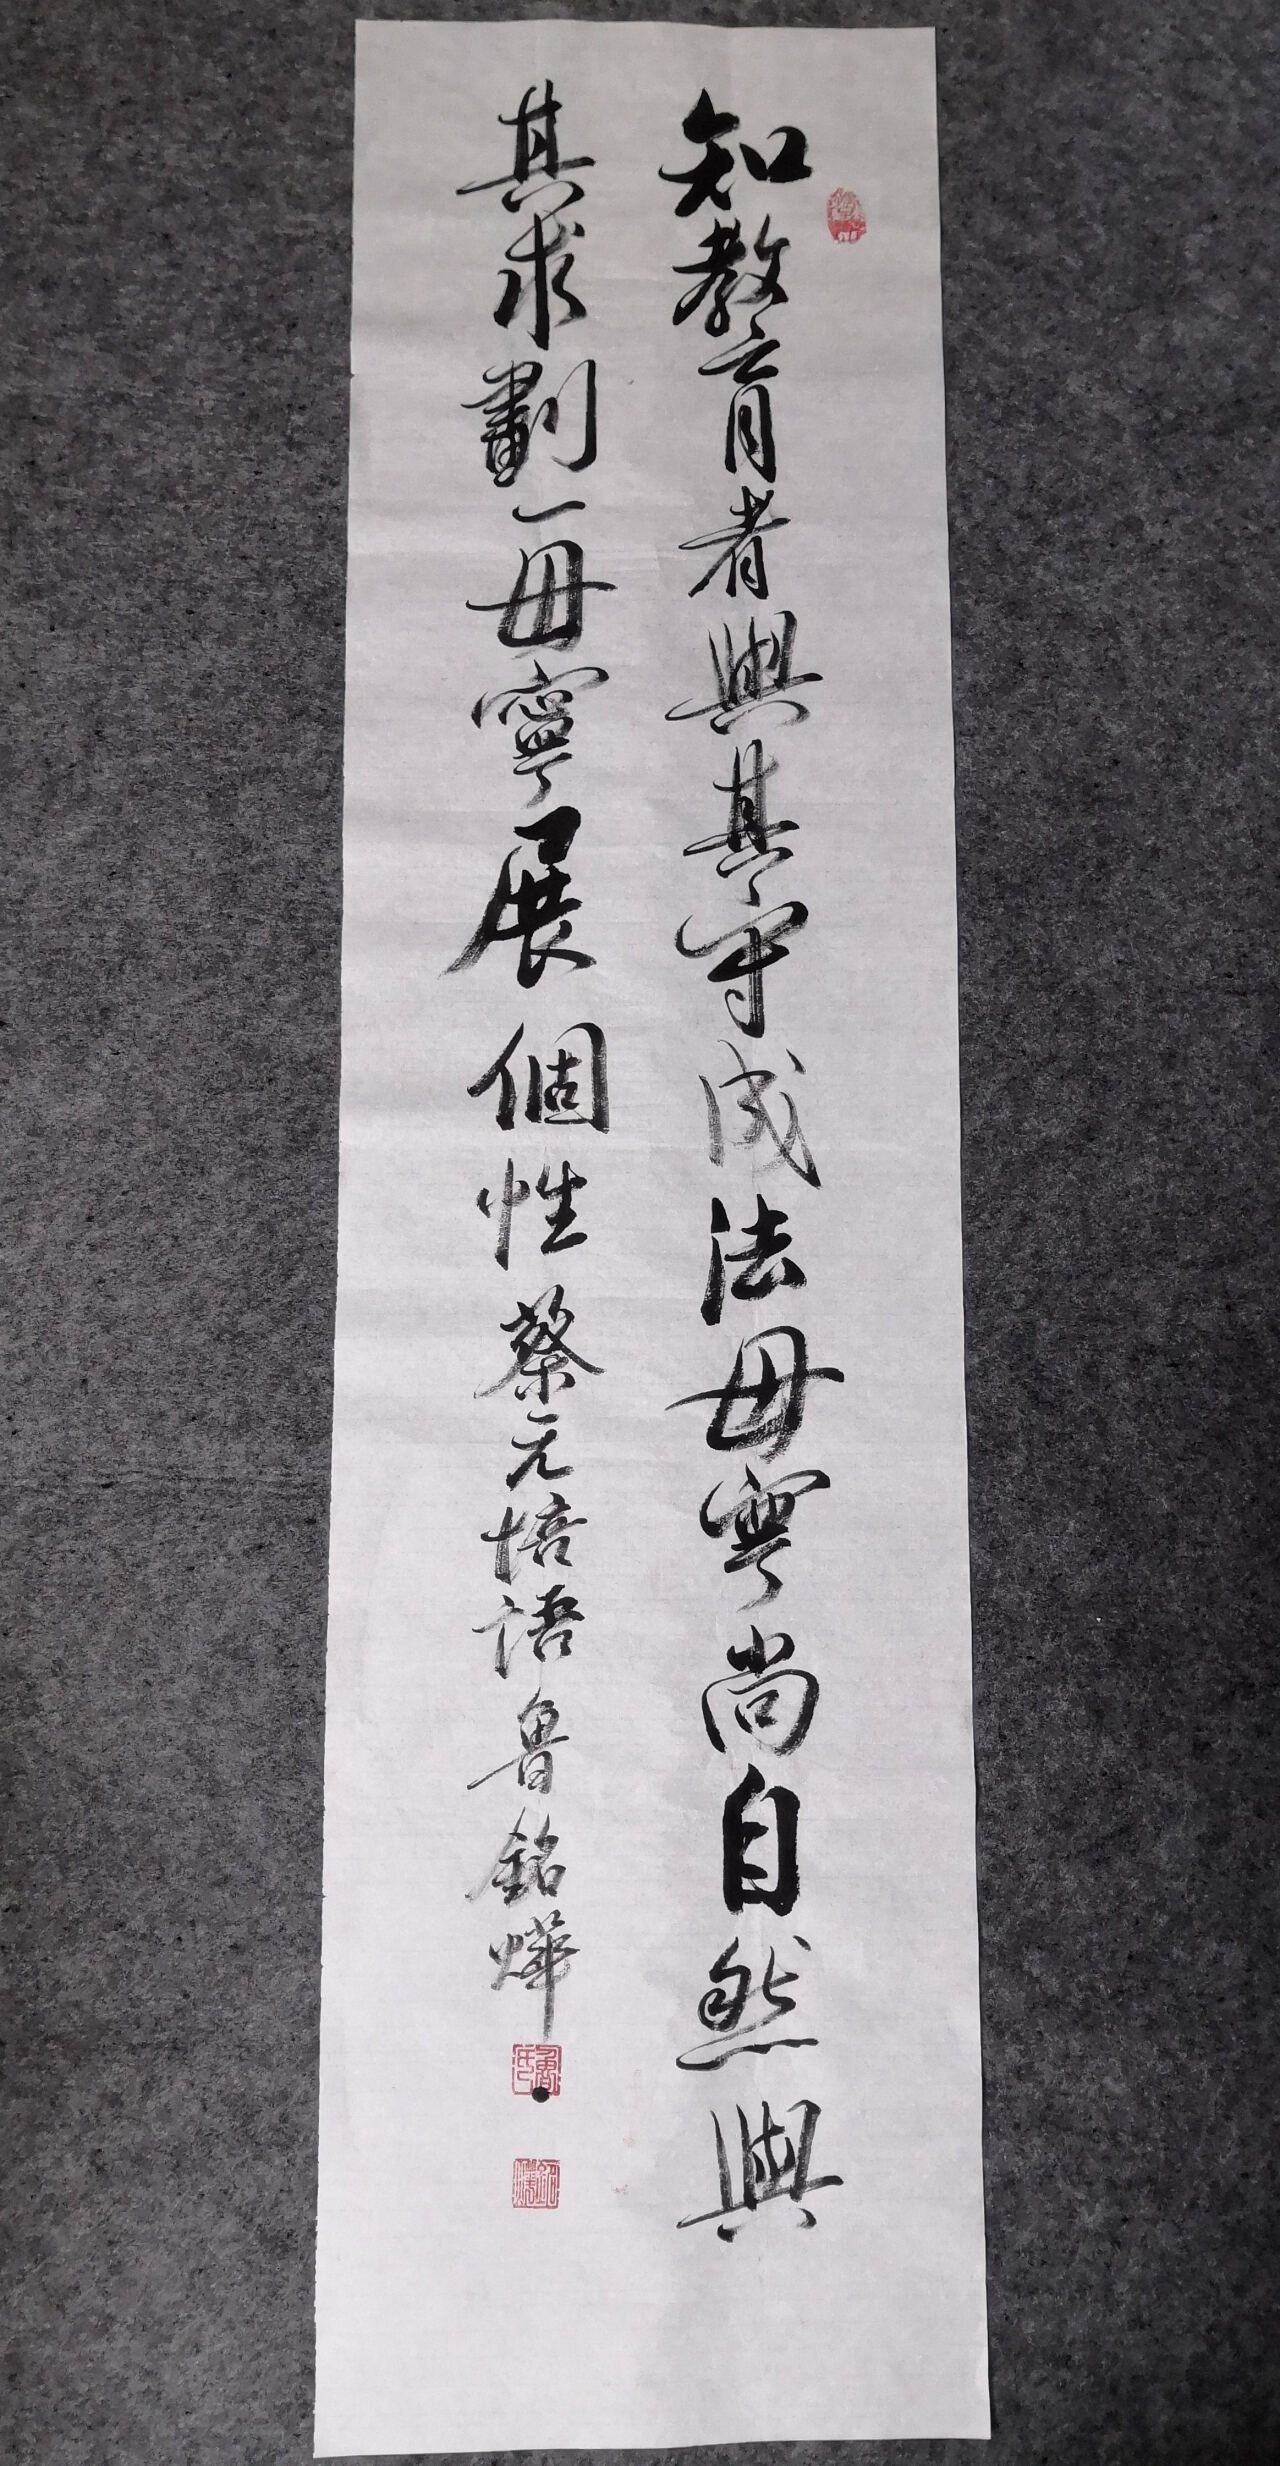 知教育者與其守成法毋寧尚自然與
其求劃一毋寧展個性蔡元培語魯銘燁
魯氏